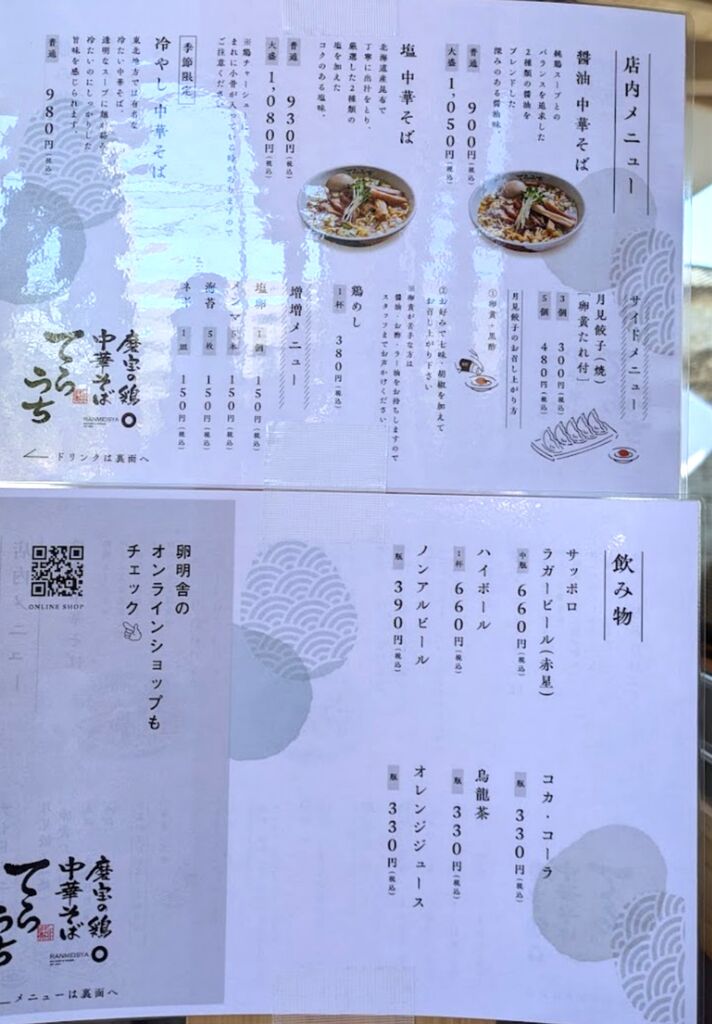 店内メニュー
醤油 中華そば
純鶏スープとの
バランスを追求した
2種類の醤油を
ブレンドした
深みのある醤油味。
普通 900円(税込)
大盛 1,050円(税込)
塩 中華そば
北海道産昆布で
丁寧に出汁をとり、
厳選した2種類の
塩を加えた
コクのある塩味。
普通 930円(税込)
大盛 1,080円(税込)
※鶏チャーシューに
まれに小骨が入っている時がありますので
ご注意ください
季節限定
冷やし 中華そば
東北地方では有名な
冷たい中華そば。
透明なスープに麺が絡み
冷たいのにしっかりした
旨味を感じられます。
普通 980円(税込)
サイドメニュー
月見餃子(焼)
[卵黄たれ付]
3個 300円(税込)
5個 480円(税込)
月見餃子のお召し上がり方
①卵黄+黒酢
②お好みで七味、胡椒を加えて
お召し上がり下さい
※卵黄が苦手な方は
醤油、お酢、ラー油をお持ちしますので
スタッフまでお声かけください
鶏めし
1杯 380円(税込)
増増メニュー
塩卵 1個 150円(税込)
メンマ 5本 150円(税込)
海苔 5枚 150円(税込)
ネギ 1皿 150円(税込)
磨宝の鶏
中華そば
てらうち
RANMEISYA
ドリンクは裏面へ
飲み物
サッポロ
ラガービール(赤星)
中瓶 660円(税込)
ハイボール
1杯 660円(税込)
ノンアルビール
瓶 390円(税込)
コカ・コーラ
瓶 330円(税込)
烏龍茶
瓶 330円(税込)
オレンジジュース
瓶 330円(税込)
卵明舎の
オンラインショップも
チェック
ONLINE SHOP
磨宝の鶏
中華そば
てらうち
RANMEISYA
メニューは裏面へ